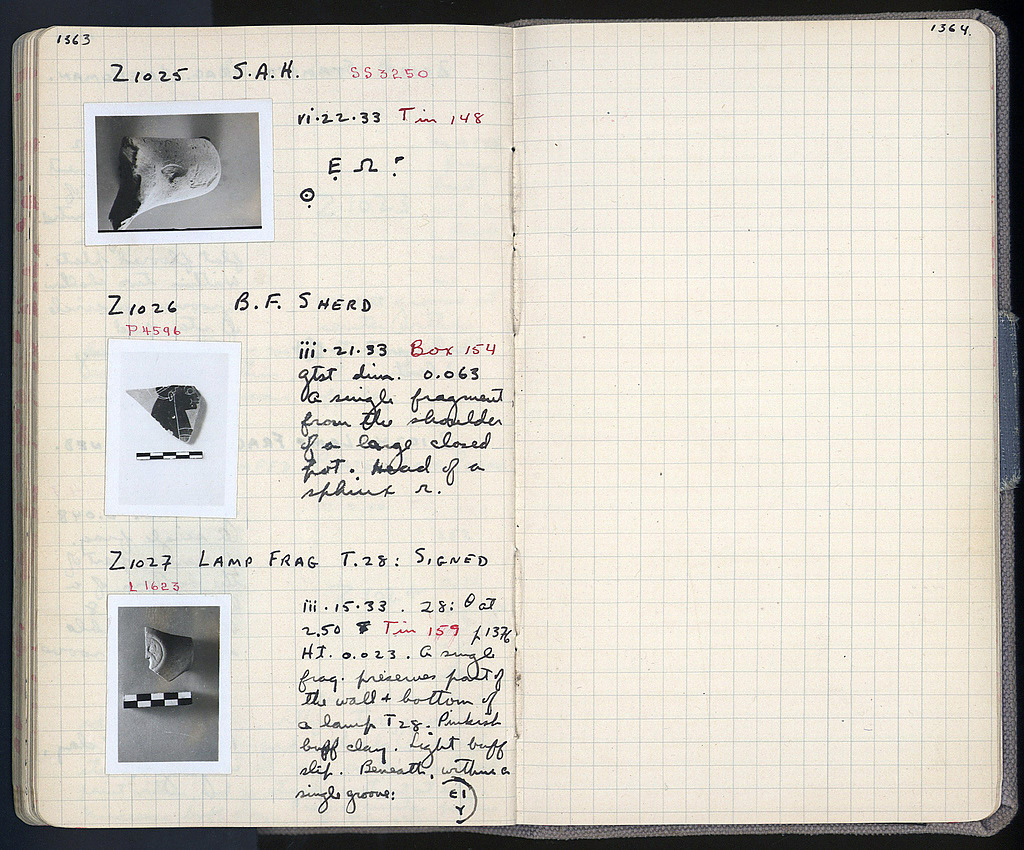 1363
1364.
Z1025 S.A.H. SS3250
vi·22·33 Tin 148
Ẹ Ω
⊙
Z1026 B.F. SHERD
P4596
iii·21·33 Box 154
gtst dim. 0.063
A single fragment
from the shoulder
of a large closed
pot. Head of a
sphinx r.
Z1027 LAMP FRAG T.28: SIGNED
L1623
iii·15·33. 28:Θ at
2.50 Tin 159 p1376
HT. 0.023. A single
frag. preserves part of
the wall + bottom of
a lamp T28. Pinkish
buff clay. Light buff
slip. Beneath, within a
single groove:
EI
Y